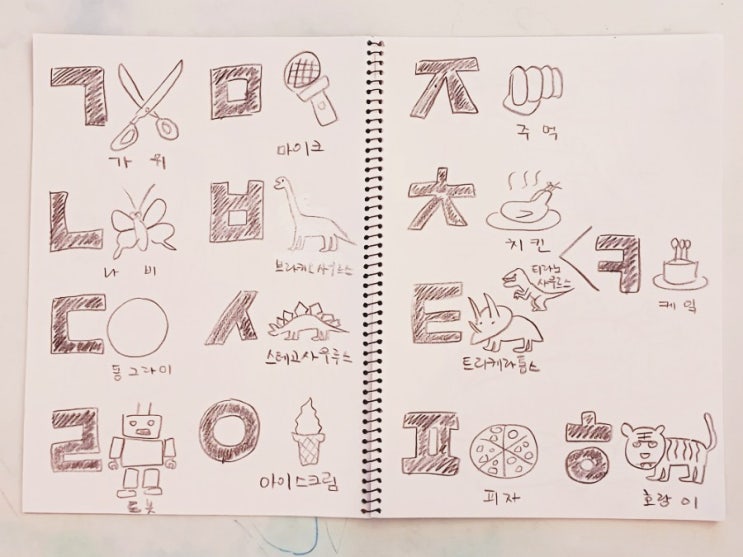 ㄱ
가위
ㄴ
나비
ㄷ
동그라미
ㄹ
로봇
ㅁ
마이크
ㅂ
브라키오사우루스
ㅅ
스테고사우루스
ㅇ
아이스크림
ㅈ
주먹
ㅊ
치킨
ㅋ
케익
ㅌ
티라노
사우르스
트리케라톱스
ㅍ
피자
ㅎ
호랑이